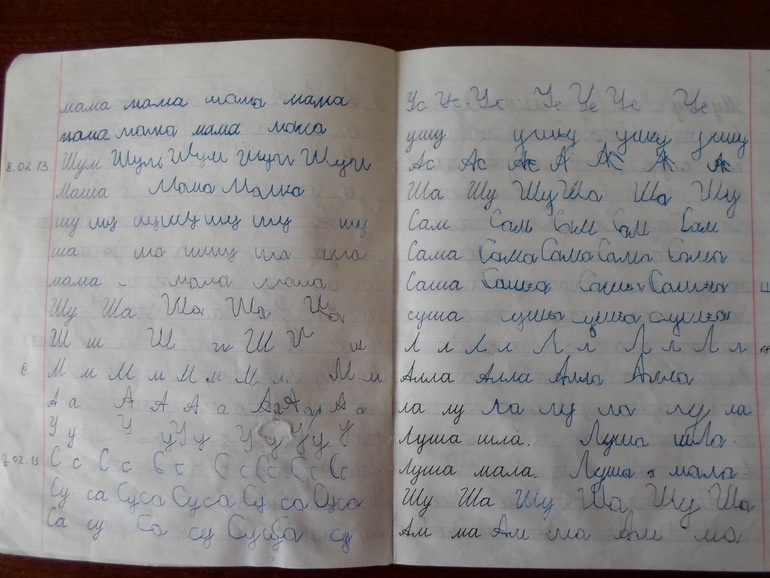 мама мама мама мама
мама мама мама мама
8.02.13 Шум Шум Шум Шум Шум
Маша Мама Малка
шу шу шу шу шу шу шу
ша ша ша ша
мама мама
Шу Ша Ша Ша Ша
Ш ш Ш Ш ш
М м М м М м М м М м
А а А А А а А а А а А а
У у У у У у У у У у У
.02.13 С с С с С с С с С с С с С с
Су са Су са Су са Су са Су са
Са су Са су Су Са су
Ус Ус Ус Ус Ус Ус Ус
ушу ушу ушу ушу
Ас Ас Ас А Ас Ас Ас
Ша Шу Шу Ша Ша Шу
Сам Сам Сам Сам Сам
Сама Сама Сама Сама Сама
Саша Сашка Сашка Сашка
суша сушка сушка сушка
Л л Л л Л л Л л Л л
Алла Алла Алла Алла
ла лу ла лу ла лу ла
Луша шла. Луша шла.
Луша мала. Луша мала
Шу Ша Шу Ша Шу Ша
Ам ма Ам ма Ам ма